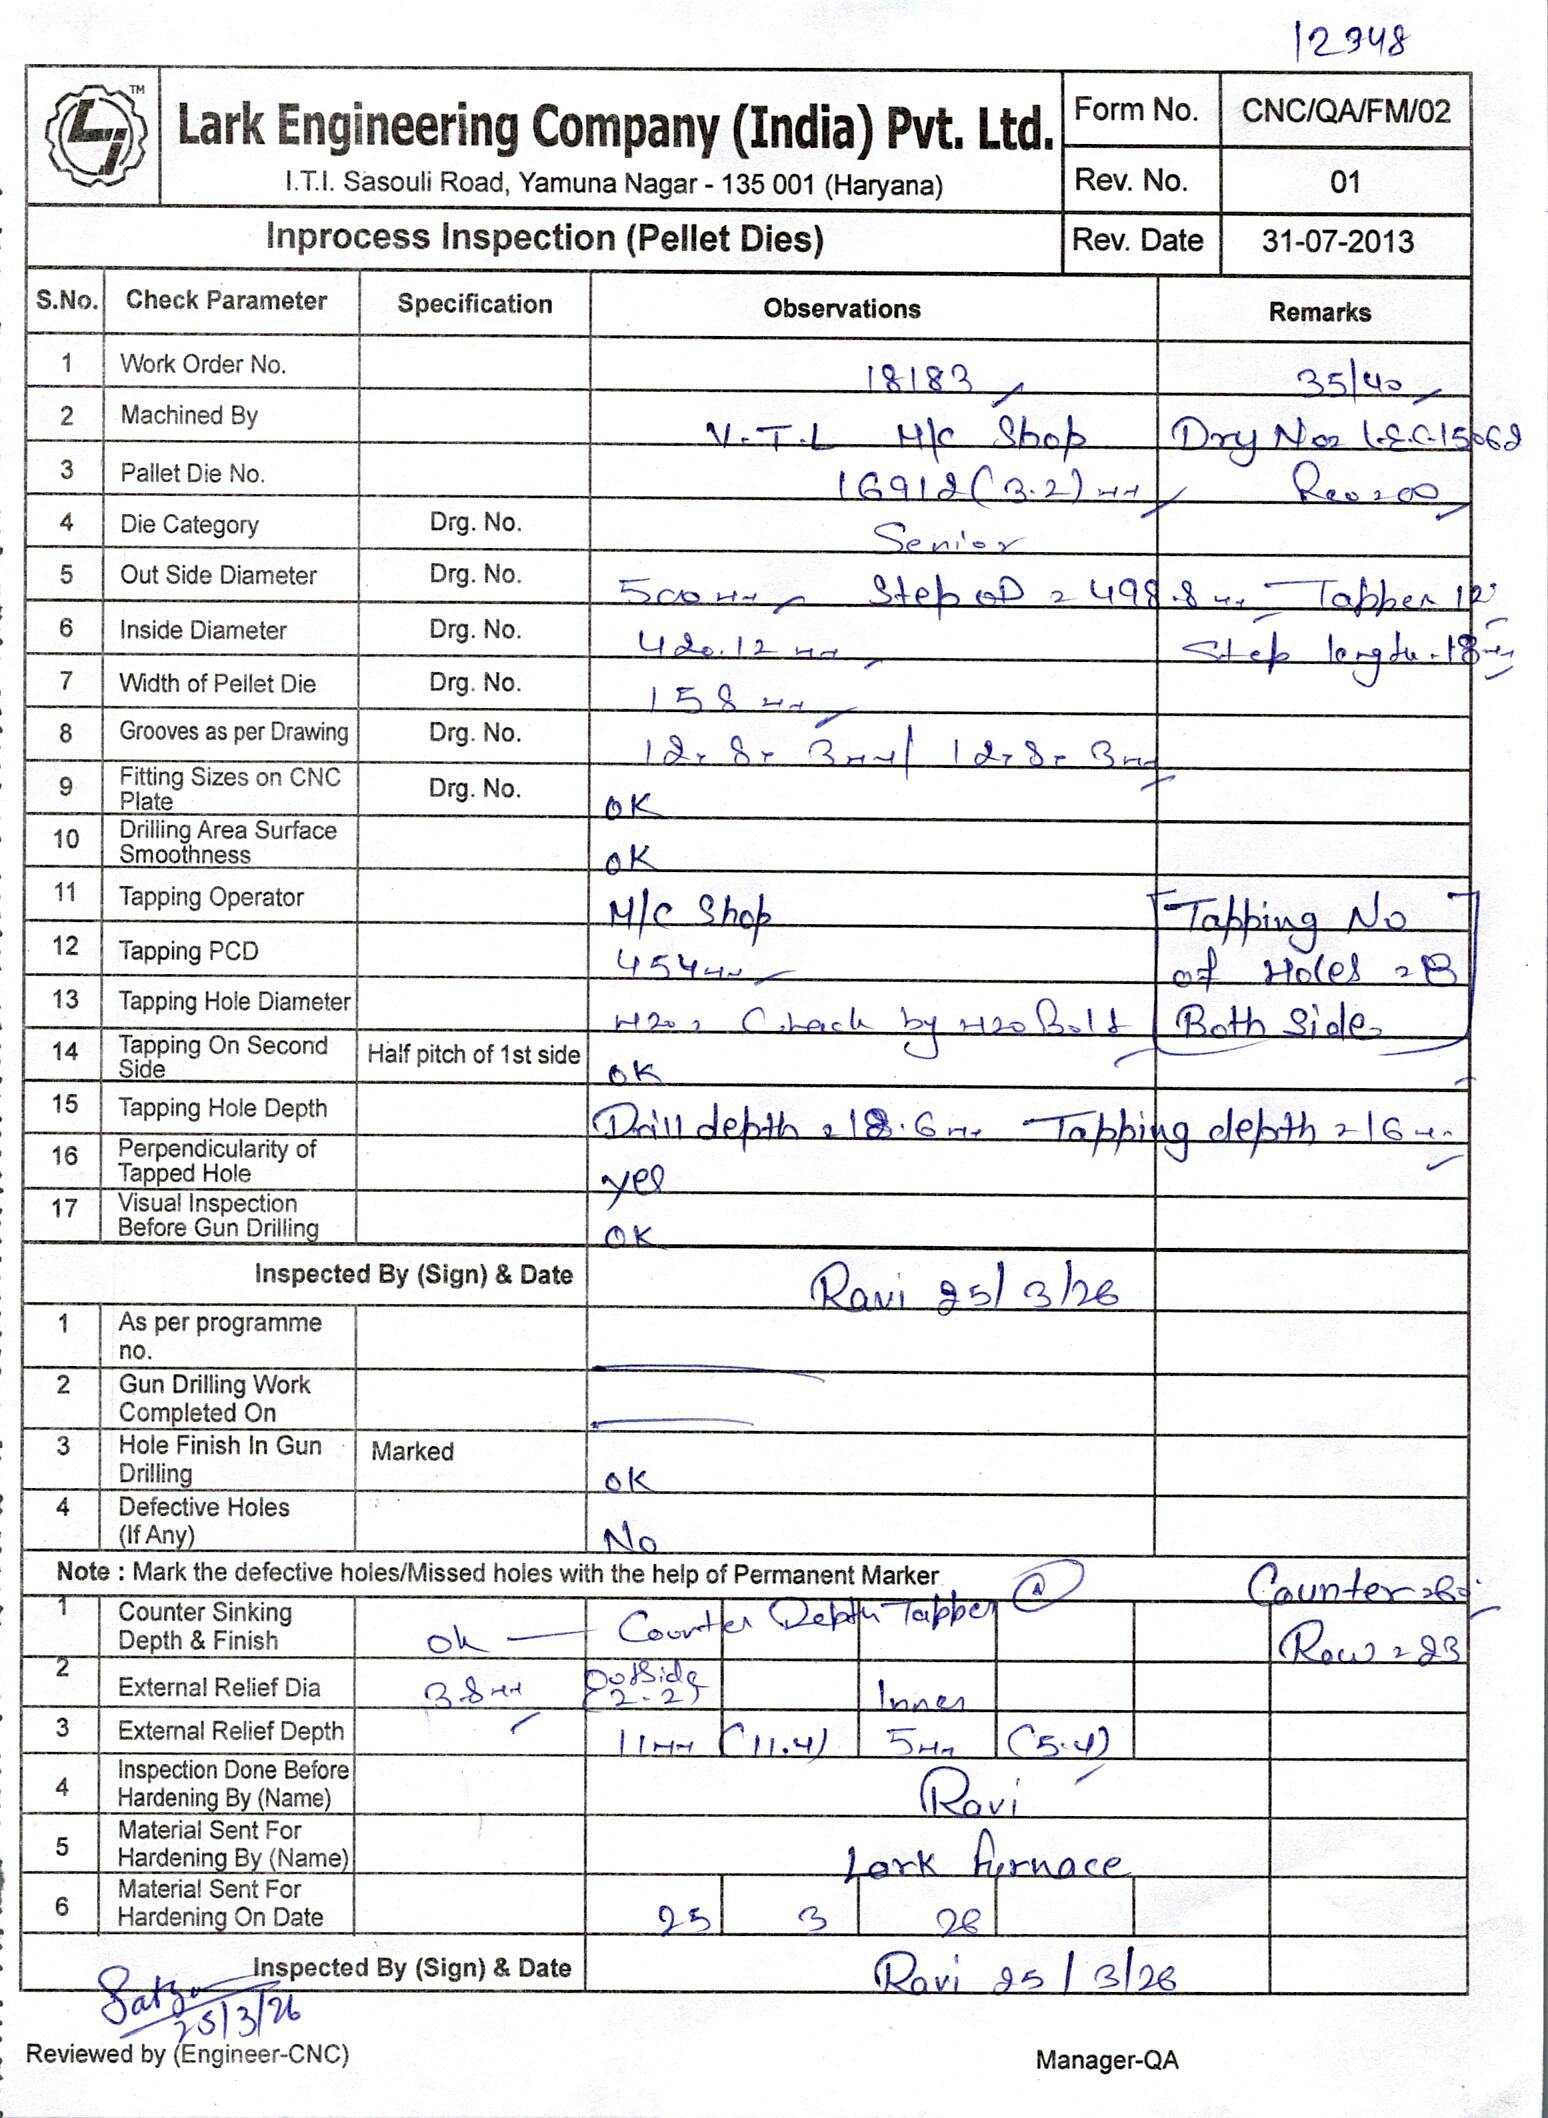 12348
TM
Lark Engineering Company (India) Pvt. Ltd.
I.T.I. Sasouli Road, Yamuna Nagar - 135 001 (Haryana)
Form No. CNC/QA/FM/02
Rev. No. 01
Inprocess Inspection (Pellet Dies) Rev. Date 31-07-2013
S.No. Check Parameter Specification Observations Remarks
1 Work Order No. 18183 35/40
2 Machined By V.T.L M/C Shop Drg No= L.E.C-15062
3 Pallet Die No. 16912(3.2)mm Rev=00
4 Die Category Drg. No. Senior
5 Out Side Diameter Drg. No. 500mm Step OD = 498.8mm Tapper 12°
6 Inside Diameter Drg. No. 420.12 mm Step length-18mm
7 Width of Pellet Die Drg. No. 158mm
8 Grooves as per Drawing Drg. No. 12- 8- 3mm/ 12-8-3mm
9 Fitting Sizes on CNC Plate Drg. No. OK
10 Drilling Area Surface Smoothness OK
11 Tapping Operator M/C Shop Tapping No
12 Tapping PCD 454mm of Holes =
13 Tapping Hole Diameter M20= Check by M20 Bolt Both Side
14 Tapping On Second Side Half pitch of 1st side OK
15 Tapping Hole Depth Drill depth =18.6mm Tapping depth =16mm
16 Perpendicularity of Tapped Hole yes
17 Visual Inspection Before Gun Drilling OK
Inspected By (Sign) & Date Ravi 25/3/26
1 As per programme no.
2 Gun Drilling Work Completed On
3 Hole Finish In Gun Drilling Marked OK
4 Defective Holes (If Any) No
Note : Mark the defective holes/Missed holes with the help of Permanent Marker Counter=60°
1 Counter Sinking Depth & Finish ok — Counter Depth Tapper Row=23
2 External Relief Dia 3.8mm OutSide (2-2) Inner
3 External Relief Depth 11mm (11.4) 5mm (5.4)
4 Inspection Done Before Hardening By (Name) Ravi
5 Material Sent For Hardening By (Name) Lark furnace
6 Material Sent For Hardening On Date 25 3 26
Inspected By (Sign) & Date Ravi 25/3/26
25/3/26
Reviewed by (Engineer-CNC) Manager-QA